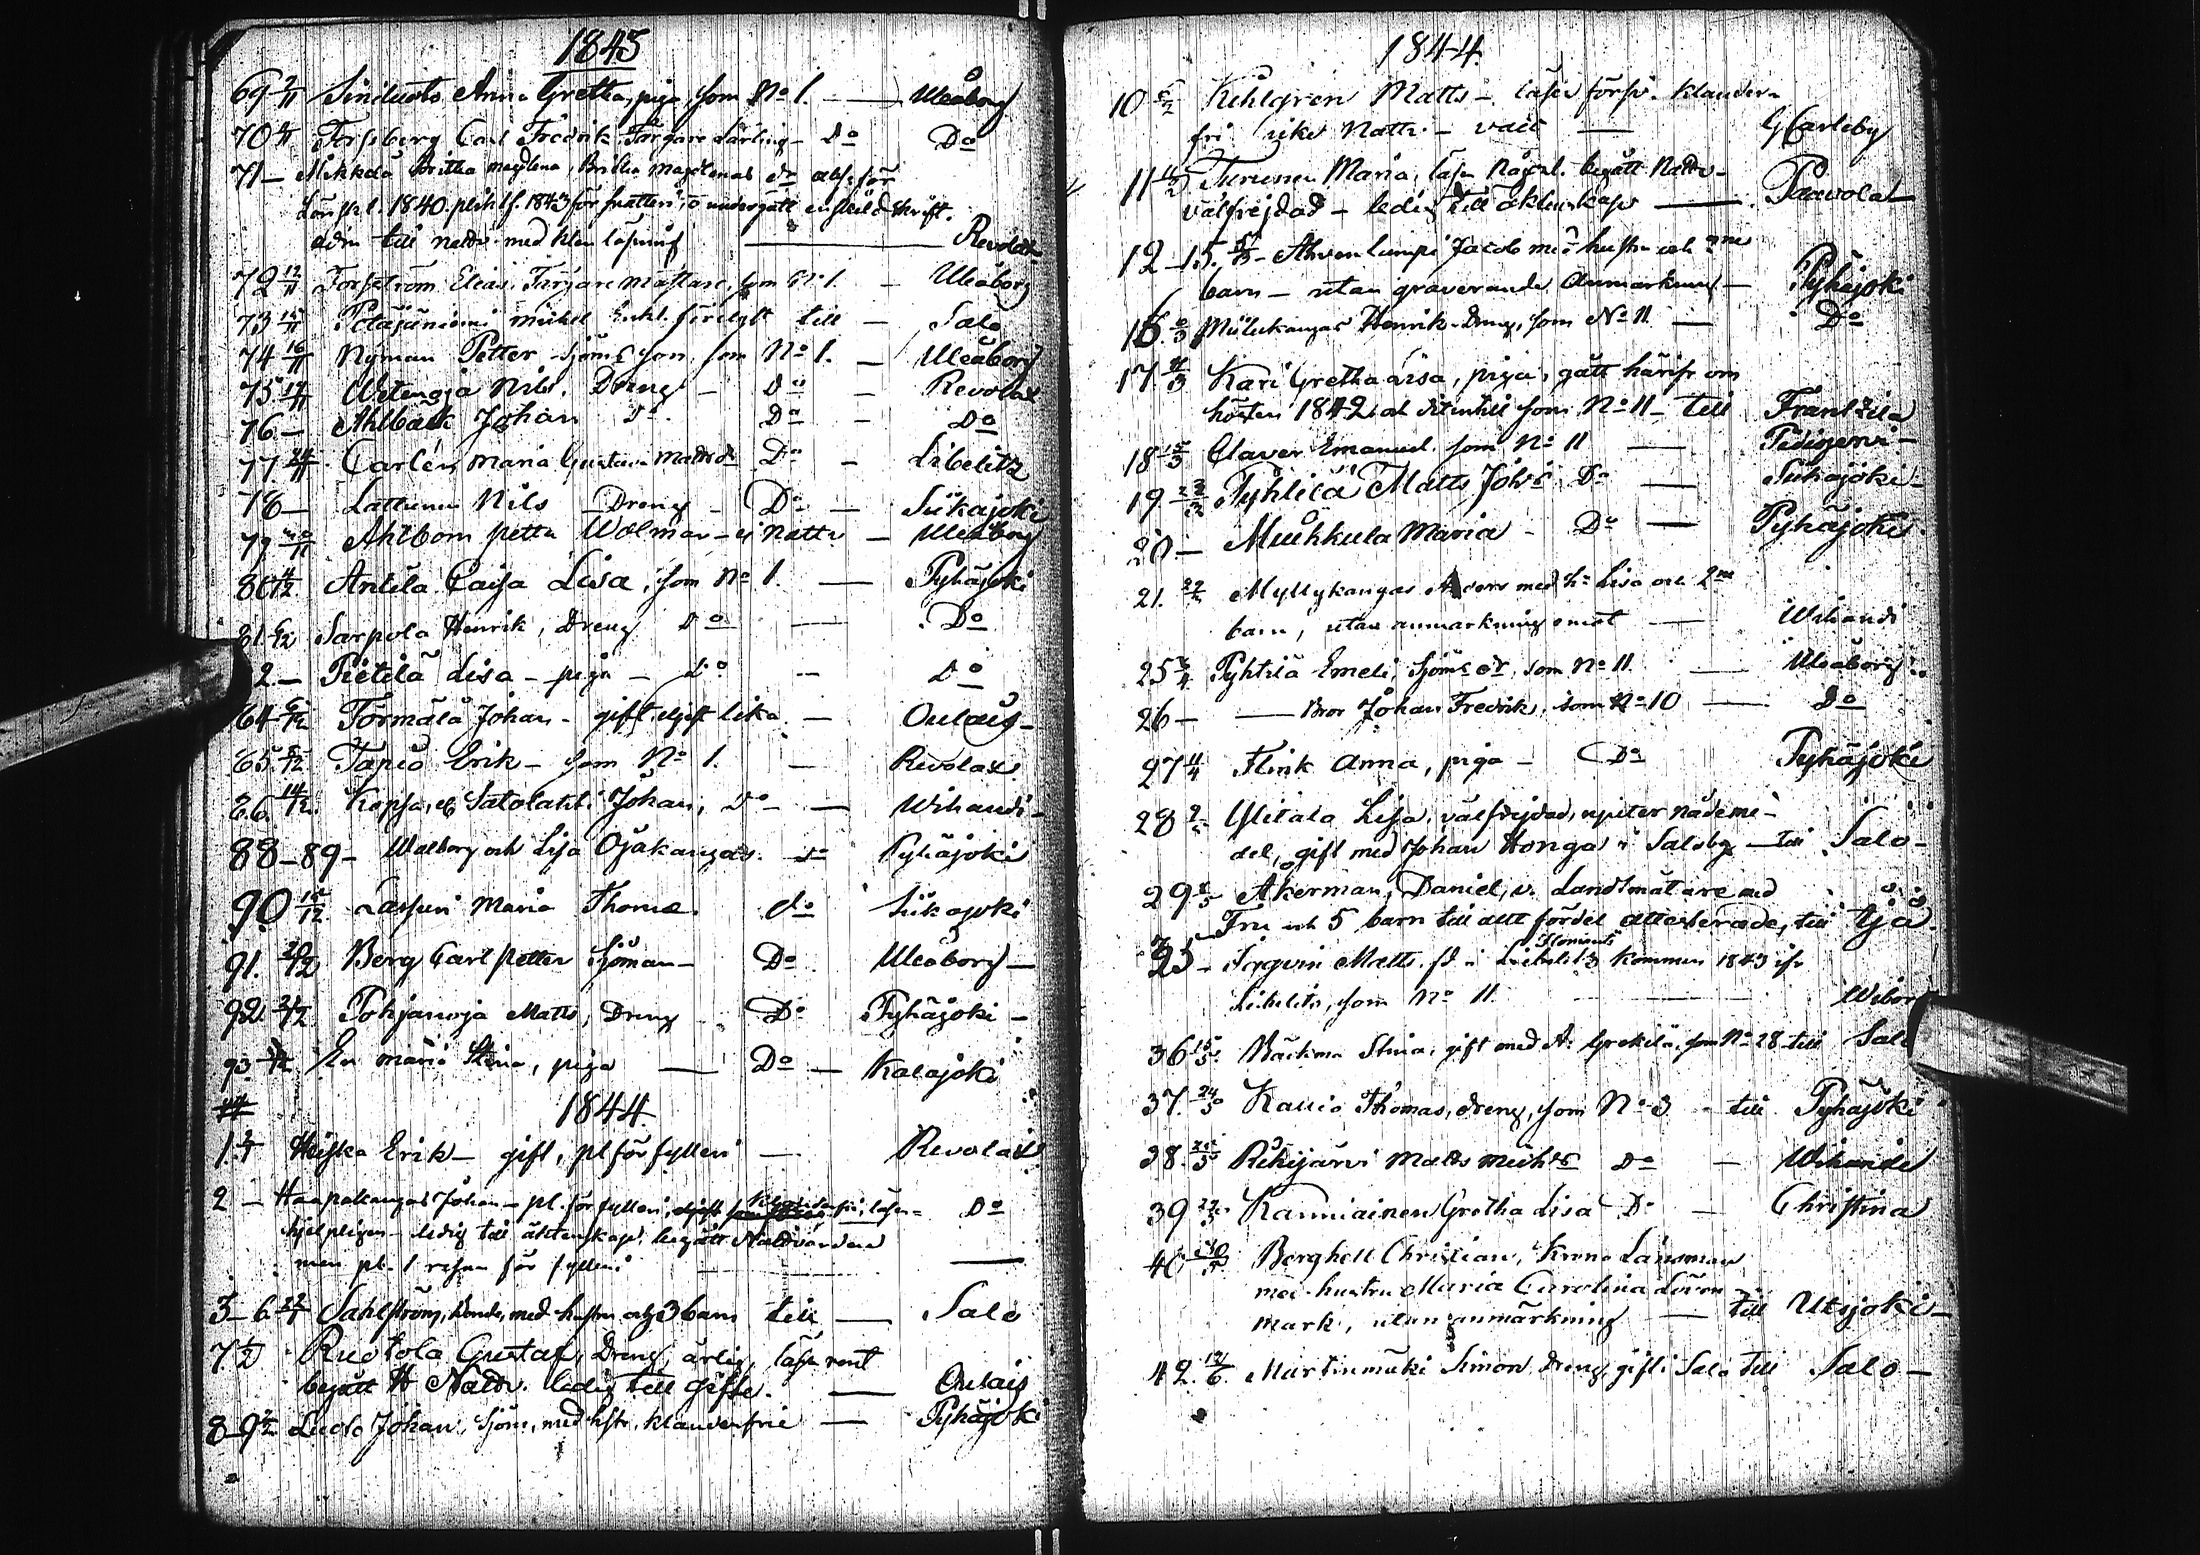 1843
69 2/11 Anna Gretha, piga, som No 1. — Uleåborg
70 Forsberg Carl Fredrik, Färgare Lärling - Do Do
71 — Mikkola Britha Magdlena, Britha Magdlenas do abs. för
1840. 1843 för fylleri, o undergått enskild skrift.
till nattv. med klen läsning — Revolax
72 12/11 Forsström Elias, Färgare mästare, som No 1. — Uleåborg
73 15/11 Potajaniemi Mikel till — Salo
74 16/11 Nyman Petter Sjöms son, som No 1. — Uleåborg
75 17/11 Nils, Dreng — Do — Revolax
76. — Ahlbäck Johan Do. Do — Do
77. 24/11 Carlén, Maria Gustava Mattsdr Do — Libelitz
78 — Lattunen Nils Dreng — Do — Siikajoki
79 Ahlbom Petter Wolmar — ej nattv — Uleåborg
80 4/12 Antila Caisa Lisa, som No 1. — Pyhäjoki
81. 6/12 Sarpola Henrik, Dreng Do — Do
2 — Pietilä Lisa — piga — Do — Do
84 6/12 Törmälä Johan — gift — Oulais —
85. 8/12 Tapio Erik — som No 1. — Revolax
86. 14/12. Kopsa, el Satolahti Johan, Do — Wihandi —
88 — 89 — Walborg och Lisa Ojakangas. Do Pyhäjoki
90 15/12 Lassuri Maria Thomæ. do Siikajoki
91. 20/12 Berg Carl Petter Sjöman — Do Uleåborg —
92 21/12 Pohjanoja Matts, Dreng Do Pyhäjoki —
93 Maria Stina, piga — Do — Kalajoki
1844
1. Heiska Erik — gift, pl för fylleri — Revolax
2 — Haapakangas Johan — pl. för fylleri, läser Do
hjelpligen — ledig till äktenskap, begått Nattvarden
men pl. 1 resan för fylleri —
3 — 6 Sahlström, med hustru och 3 barn till — Salo
7 Ruotola Gustaf, Dreng, ärlig, läser rent
begått H Nattv. ledig till gifte. — Oulais
8 — 9 Luoto Johan, Sjöm. med hstr. klanderfrie — Pyhäjoki
1844
10 Kihlgren Matts — läser försv. klander-
fri Nattv. — vacc — GCarleby
11 Turunen Maria, läser någorl. begått Nattv —
välfrejdad — ledig till äktenskap — Paavola
12 — 15. Ahvenlampi Jacob med hustru och 2ne
barn — utan graverande Anmärkning — Pyhäjoki
16. Miilukangas Henrik — Dreng, som No 11. — Do
17 Kari Gretha Lisa, piga, gått härifr. om
hösten 1842 som No 11 — till Frantzila
18 15/3 Claver Emanuel som No 11 — Pidisjervi —
19 Pyhtilä Matts Johs Do — Siikajoki —
20 — Muhkula Maria — Do — Pyhäjoki
21. Myllykangas Anders med h. Lisa och 2ne
barn, utan anmärkning emot — Wihandi
25 Pyhtilä Emeli, Sjöms dr, som No 11. — Uleåborg
26 — — Bror Johan Fredrik, som No 10 — Do
27 11/4 Flink Anna, piga — Do Pyhäjoki
28 Ylitalo Lisa, välfrejdad, njuter nådeme-
del, gift med Johan Honga i Saloby — till Salo —
29 Åkerman, Daniel, v. Landtmätare med
Fru och 5 barn till allt fördel attesterade, till Ijå.
35 — Matts. i Libelitz Kommen 1843 ifr
Libelits, som No 11. — Wiborg
36 15/5 Bäckman Stina, gift med A. Grekilä, som No 28 till Salo
37. 24/5 Kauio Thomas, dreng, som No 3 — till Pyhäjoki
38. Rikijärvi Matts Do — Wihandi
39 Kauniainen Gretha Lisa Do — Christina
40 Berghell Christian, Krono Länsman
med hustru Maria Carolina Löven
mark, utan anmärkning — till Utsjoki —
42. Martinmäki Simon, Dreng, gift i Salo till Salo —